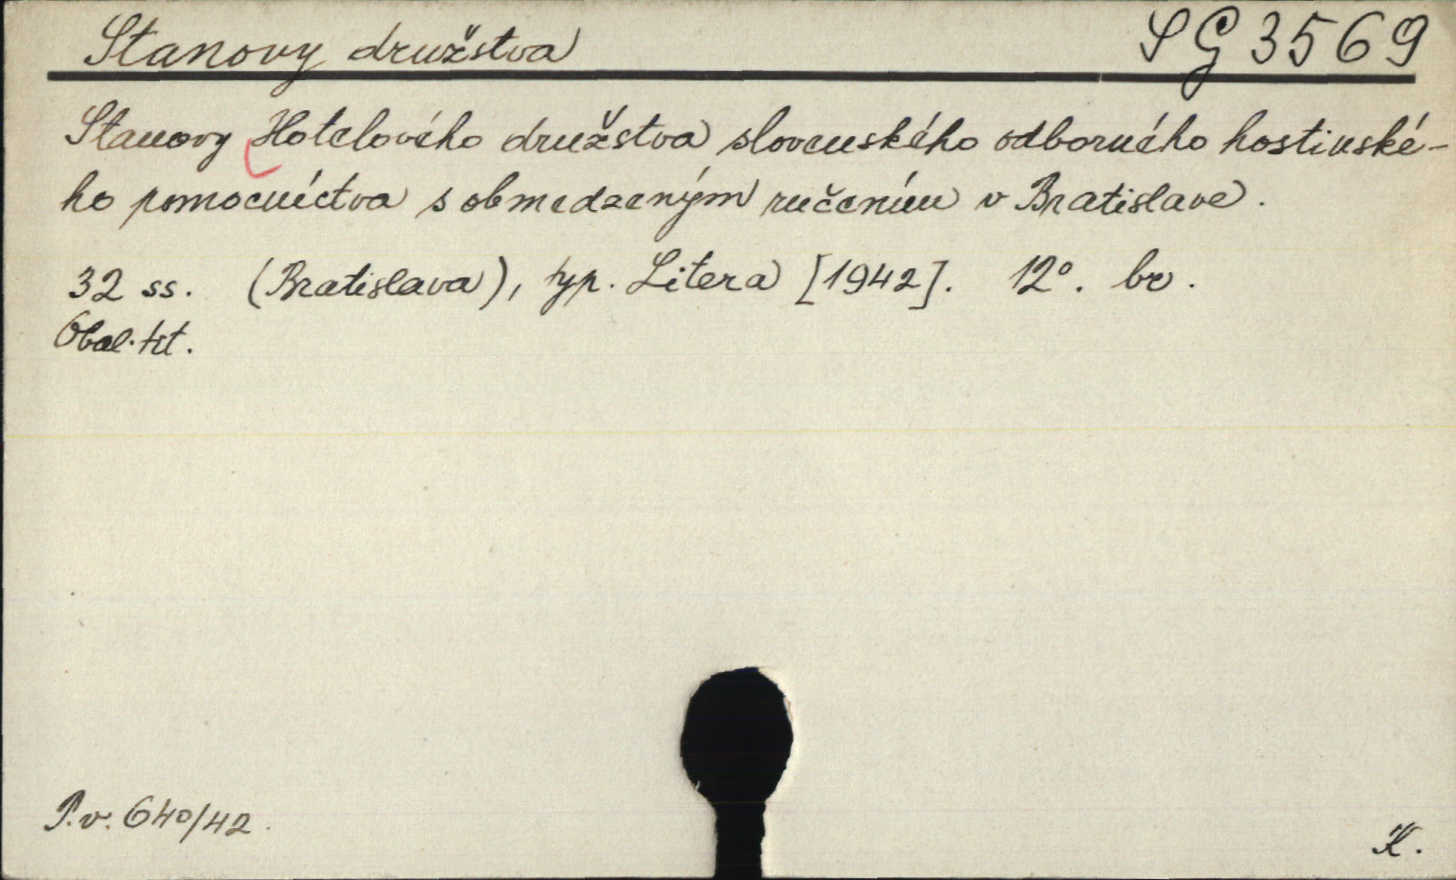 Stanovy družstva SG 3569
Stanovy Hotelového družstva slovenského odborného hostinské-
ho pomocníctva s obmedzeným ručením v Bratislave.
32 ss. (Bratislava), typ. Litera [1942]. 12°. br.
Obal. tit.
P.v. 640/42.
K.